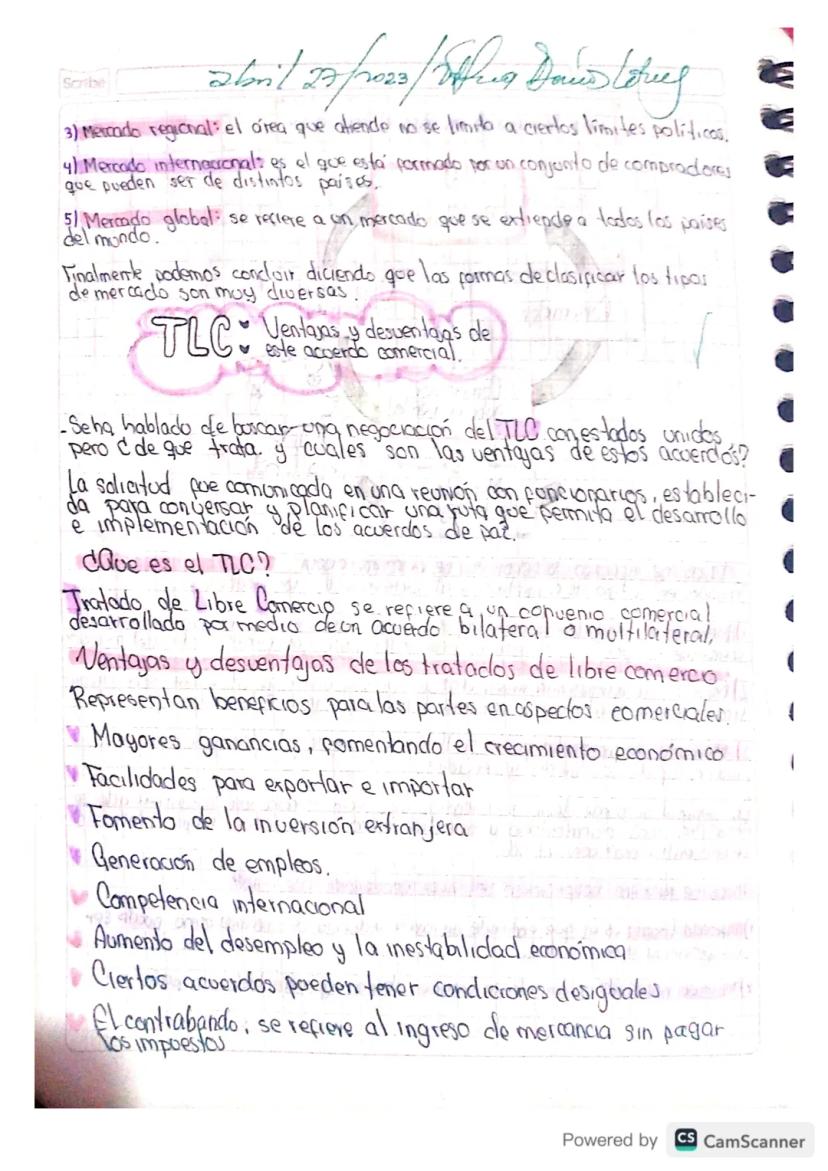 Scribe
abril 27/2023/
3) Mercado regional: el área que atiende no se limita a ciertos límites políticos.
4) Mercado internacional: es el que está formado por un conjunto de compradores
que pueden ser de distintos países.
5) Mercado global: se refiere a un mercado que se extiende a todos los países
del mundo.
Finalmente podemos concluir diciendo que las formas de clasificar los tipos
de mercado son muy diversas.
TLC: Ventajas y desventajas de
este acuerdo comercial.
- Se ha hablado de buscar una negociación del TLC con estados unidos
pero ¿de que trata y cuales son las ventajas de estos acuerdos?
La solicitud fue comunicada en una reunión con funcionarios, estableci-
da para conversar y planificar una ruta que permita el desarrollo
e implementación de los acuerdos de paz.
¿Que es el TLC?
Tratado de Libre Comercio se refiere a un convenio comercial
desarrollado por medio de un acuerdo bilateral o multilateral,
Ventajas y desventajas de los tratados de libre comercio
Representan beneficios para las partes en aspectos comerciales.
Mayores ganancias, fomentando el crecimiento económico
Facilidades para exportar e importar
Fomento de la inversión extranjera
Generación de empleos.
Competencia internacional
Aumento del desempleo y la inestabilidad económica
Ciertos acuerdos pueden tener condiciones desiguales
El contrabando: se refiere al ingreso de mercancia sin pagar
los impuestos
Powered by CS CamScanner